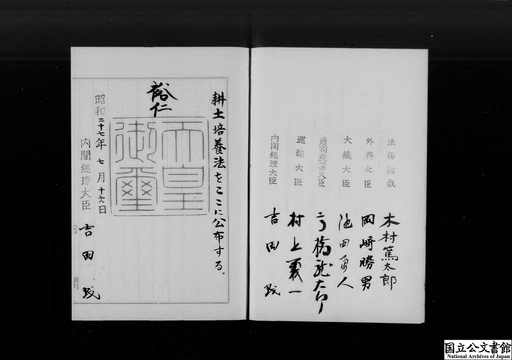 耕土培養法をここに公布する。
裕仁
天皇御璽
昭和二十七年七月十六日
内閣総理大臣 吉田茂
法務総裁 木村篤太郎
外務大臣 岡崎勝男
大蔵大臣 池田勇人
通商産業大臣 高橋龍太郎
運輸大臣 村上義一
内閣総理大臣 吉田茂
国立公文書館
National Archives of Japan